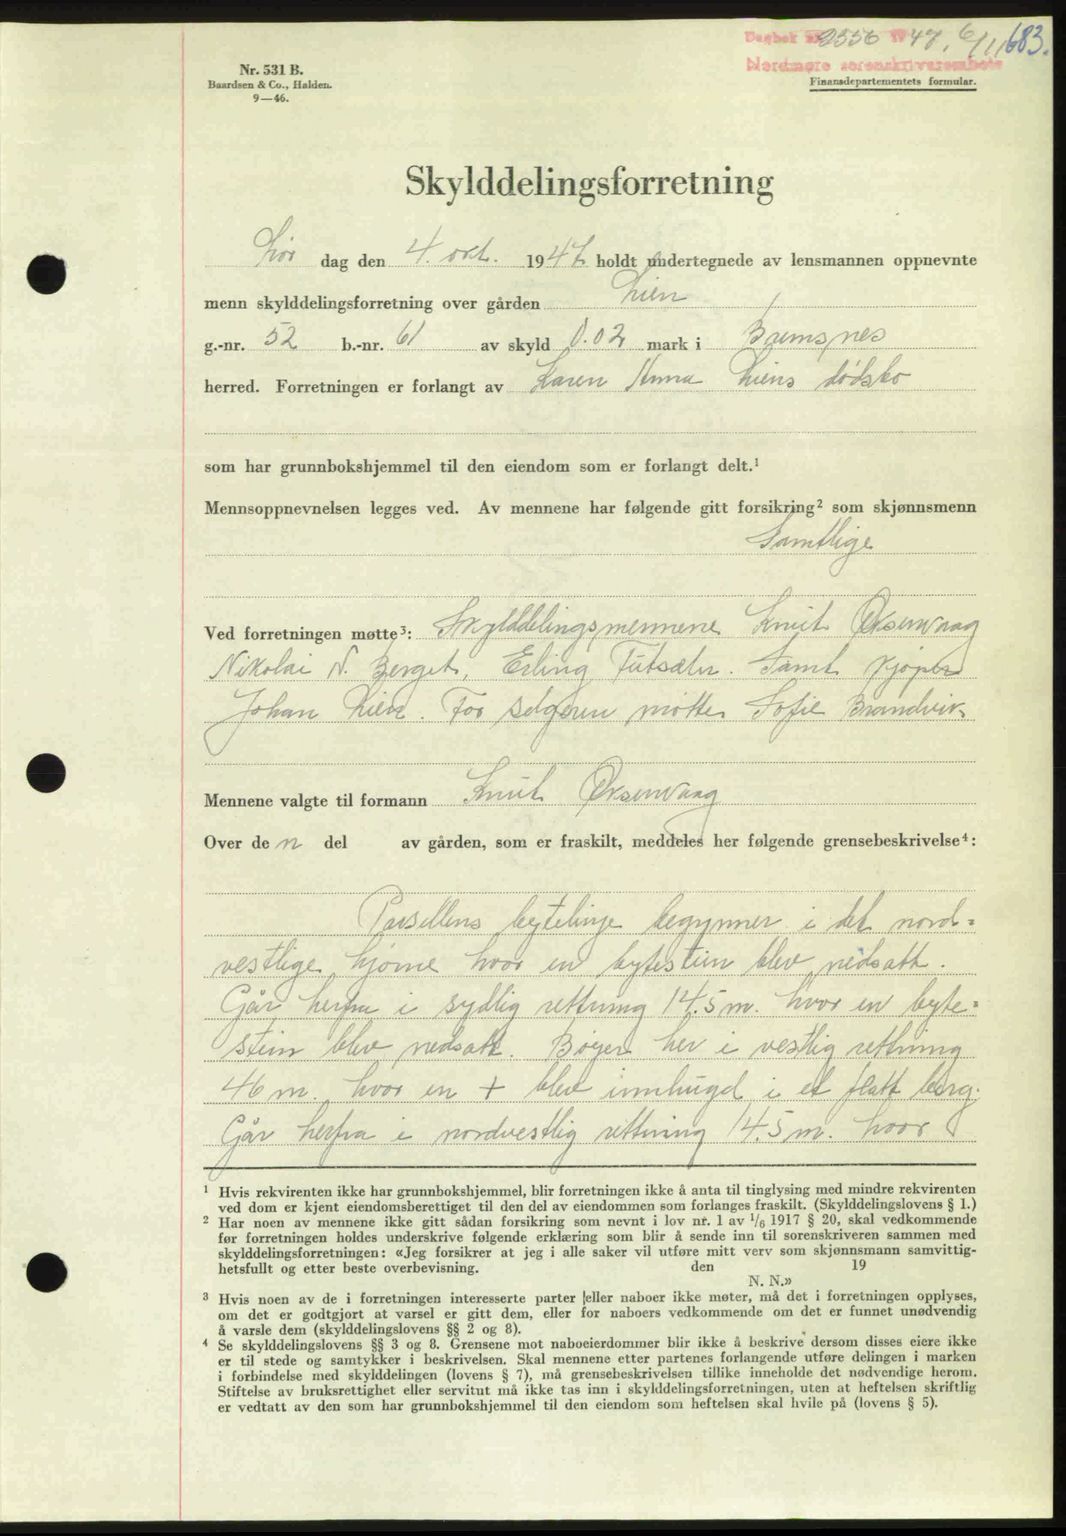 Dagbok nr. 2556 1947, 6/11 683.
Nordmøre sorenskriverembete
Nr. 531 B.
Baardsen & Co., Halden.
9—46.
Finansdepartementets formular.
Skylddelingsforretning
Lør dag den 4. okt. 1947 holdt undertegnede av lensmannen oppnevnte
menn skylddelingsforretning over gården Lien
g.-nr. 52 b.-nr. 61 av skyld 0.02 mark i Bremsnes
herred. Forretningen er forlangt av Karen Anna Liens dødsbo
som har grunnbokshjemmel til den eiendom som er forlangt delt.¹
Mennsoppnevnelsen legges ved. Av mennene har følgende gitt forsikring² som skjønnsmenn
Samtlige
Ved forretningen møtte³: Skylddelingsmennene Knut Øksenvaag
Nikolai N. Berget, Erling Futsæter. Samt kjøper
Johan Lien. For selgeren møtte Sofie Brandvik
Mennene valgte til formann Knut Øksenvaag
Over de n del av gården, som er fraskilt, meddeles her følgende grensebeskrivelse⁴:
Parsellens bytelinje begynner i det nord=
vestlige hjørne hvor en bytestein blev nedsatt.
Går herfra i sydlig rettning 14.5 m. hvor en byte=
stein blev nedsatt. Bøyer her i vestlig rettning
46 m. hvor en + blev innhugd i et flatt berg.
Går herfra i nordvestlig rettning 14.5 m. hvor
¹ Hvis rekvirenten ikke har grunnbokshjemmel, blir forretningen ikke å anta til tinglysing med mindre rekvirenten
ved dom er kjent eiendomsberettiget til den del av eiendommen som forlanges fraskilt. (Skylddelingslovens § 1.)
² Har noen av mennene ikke gitt sådan forsikring som nevnt i lov nr. 1 av 1/6 1917 § 20, skal vedkommende
før forretningen holdes underskrive følgende erklæring som blir å sende inn til sorenskriveren sammen med
skylddelingsforretningen: «Jeg forsikrer at jeg i alle saker vil utføre mitt verv som skjønnsmann samvittig-
hetsfullt og etter beste overbevisning. den 19
N. N.»
³ Hvis noen av de i forretningen interesserte parter eller naboer ikke møter, må det i forretningen opplyses,
om det er godtgjort at varsel er gitt dem, eller for naboers vedkommende om det er funnet unødvendig
å varsle dem (skylddelingslovens §§ 2 og 8).
⁴ Se skylddelingslovens §§ 3 og 8. Grensene mot naboeierdommer blir ikke å beskrive dersom disses eiere ikke
er til stede og samtykker i beskrivelsen. Skal mennene etter partenes forlangende utføre delingen i marken
i forbindelse med skylddelingen (lovens § 7), må grensebeskrivelsen tillike inneholde det nødvendige herom.
Stiftelse av bruksrettighet eller servitut må ikke tas inn i skylddelingsforretningen, uten at heftelsen skriftlig
er vedtatt av den som har grunnbokshjemmel til den eiendom som heftelsen skal hvile på (lovens § 5).